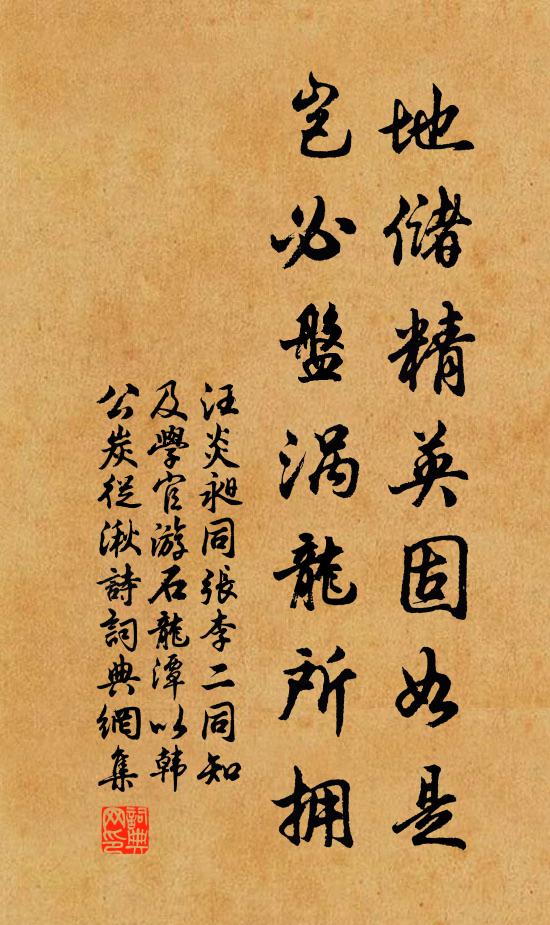 地儲精英固如是
豈必盤涡龍所拥
汪炎昶同張李二同知
及學官游石龍潭以韓
公炭從湫詩詞典網集
詞典网印